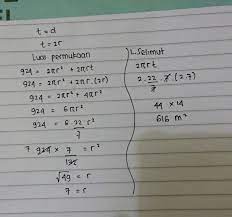 t = d
t = 2r
Luas permukaan
924 = 2πr² + 2πrt
924 = 2πr² + 2πr.(2r)
924 = 2πr² + 4πr²
924 = 6πr²
924 = 6.22 r²
7
7 924 × 7 = r²
132
√49 = r
7 = r
L. Selimut
2πrt
2.22.7.(2.7)
7
44 × 14
616 m²